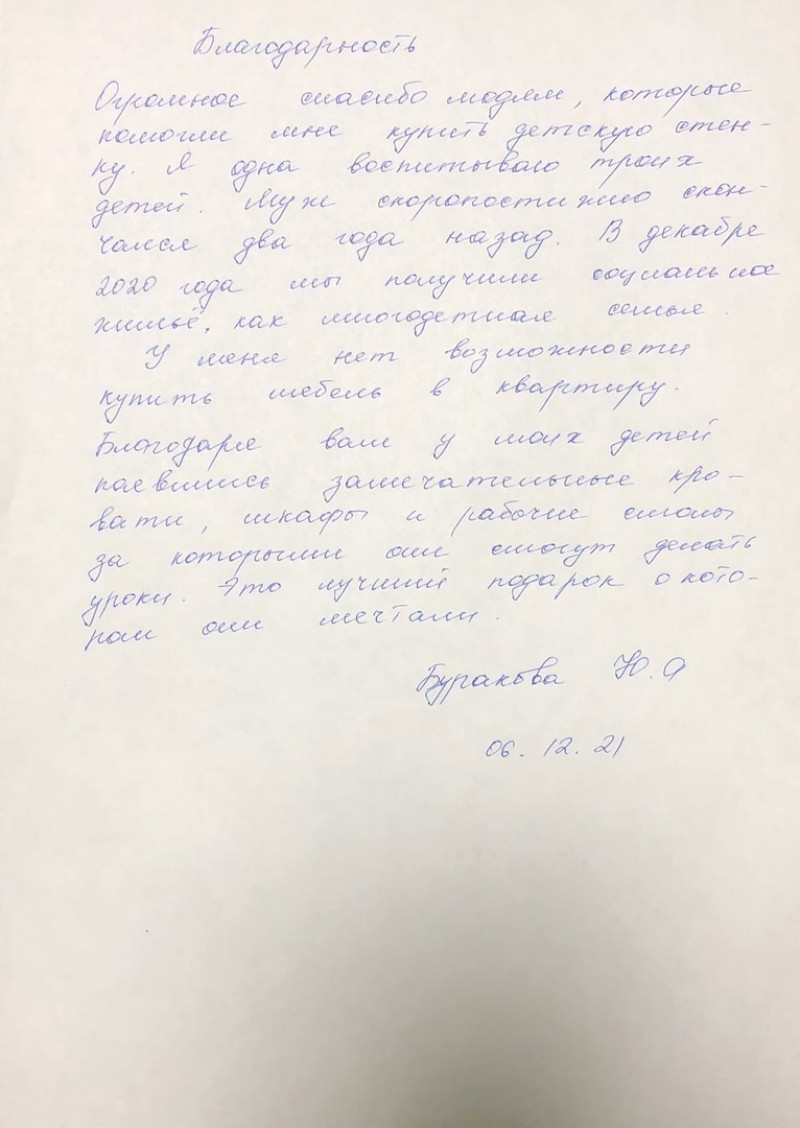 Благодарность
Огромное спасибо людям, которые
помогли мне купить детскую стен-
ку. Я одна воспитываю троих
детей. Муж скоропостижно скон-
чался два года назад. В декабре
2020 года мы получили социальное
жильё, как многодетная семья.
У меня нет возможности
купить мебель в квартиру.
Благодаря вам у моих детей
появились замечательные кро-
вати, шкафы и рабочие столы
за которыми они смогут делать
уроки. Это лучший подарок о кото-
ром они мечтали.
Буракова Ю.А
06.12.21